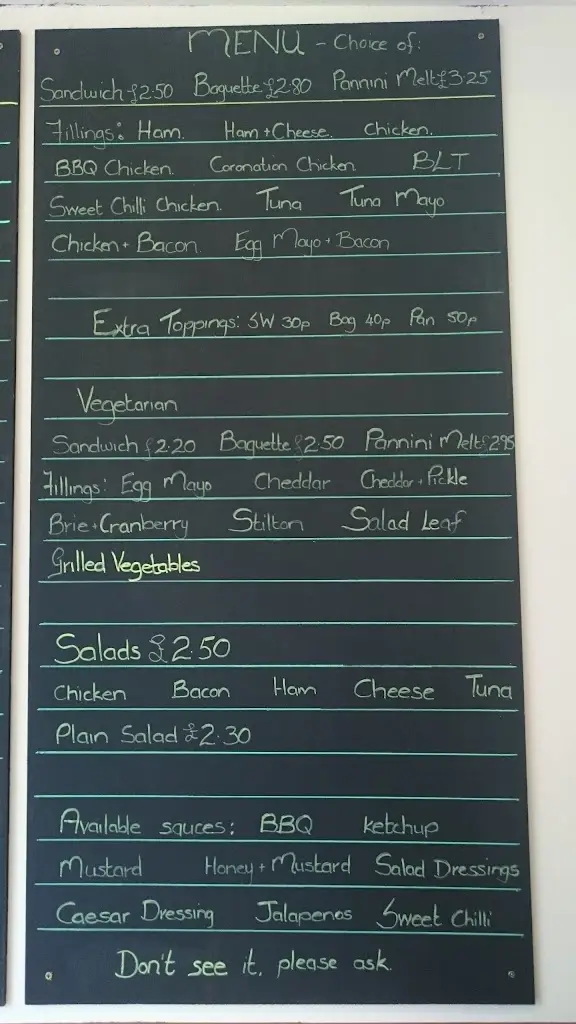 MENU - Choice of:
Sandwich £2.50 Baguette £2.80 Pannini Melt £3.25
Fillings: Ham. Ham + Cheese. Chicken.
BBQ Chicken. Coronation Chicken BLT
Sweet Chilli Chicken. Tuna Tuna Mayo
Chicken + Bacon. Egg Mayo + Bacon
Extra Toppings: SW 30p Bag 40p Pan 50p
Vegetarian
Sandwich £2.20 Baguette £2.50 Pannini Melt £2.95
Fillings: Egg Mayo Cheddar Cheddar + Pickle
Brie + Cranberry Stilton Salad Leaf
Grilled Vegetables
Salads £2.50
Chicken Bacon Ham Cheese Tuna
Plain Salad £2.30
Available sauces: BBQ ketchup
Mustard Honey + Mustard Salad Dressings
Caesar Dressing Jalapenos Sweet Chilli
Don't see it, please ask.